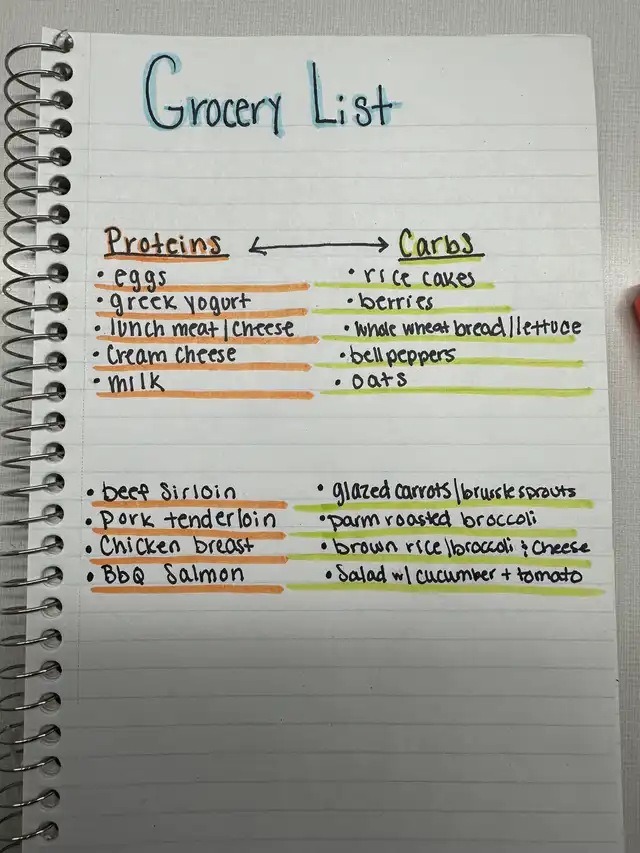 Grocery List
Proteins ↔ Carbs
• eggs • rice cakes
• greek yogurt • berries
• lunch meat/cheese • whole wheat bread/lettuce
• Cream cheese • bell peppers
• milk • oats
• beef Sirloin • glazed carrots/brussle sprouts
• Pork tenderloin • parm roasted broccoli
• Chicken breast • brown rice/broccoli & cheese
• BbQ Salmon • Salad w/ cucumber + tomato